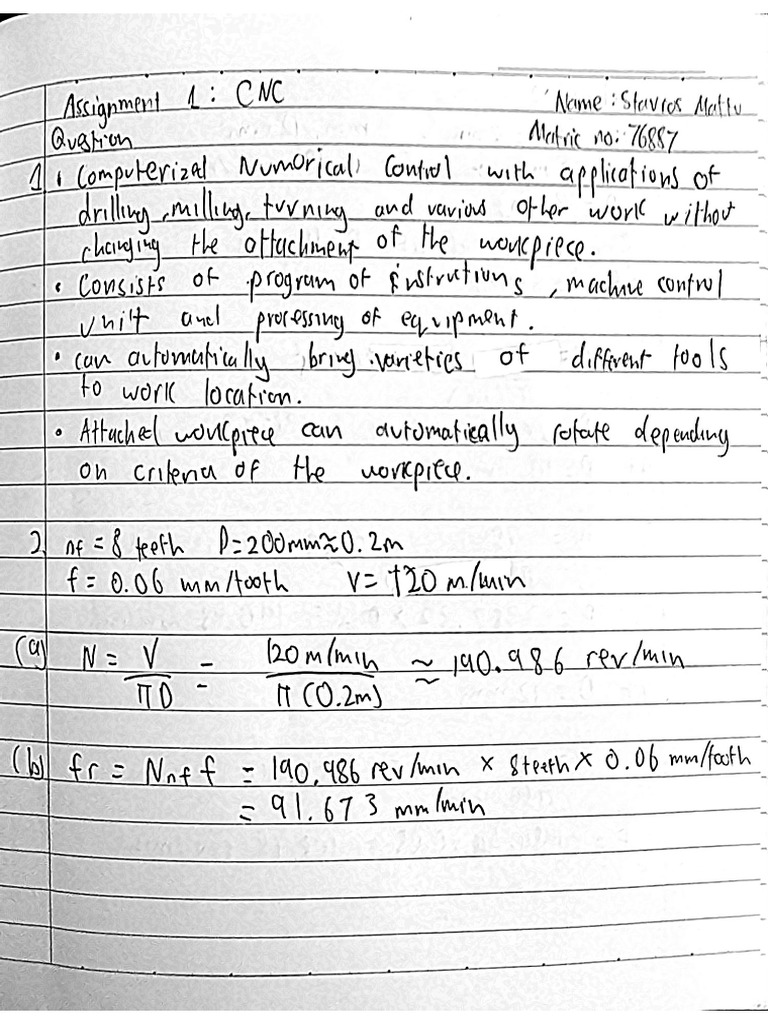 Assignment 1 : CNC
Name : Stavros Mattu
Question
Matric no: 76887
1. • Computerizal Numorical Control with applications of
drilling, milling, turning and various other work without
changing the attachment of the workpiece.
• Consists of program of instructions, machine control
unit and processing of equipment.
• can automatically bring varieties of different tools
to work location.
• Attached workpiece can automatically rotate depending
on criteria of the workpiece.
2. nf = 8 teeth D = 200mm ≈ 0.2m
f = 0.06 mm/tooth V = 120 m/min
(a) N = V / πD = 120 m/min / π (0.2m) ≈ 190.986 rev/min
(b) fr = N nf f = 190.986 rev/min × 8 teeth × 0.06 mm/tooth
= 91.673 mm/min